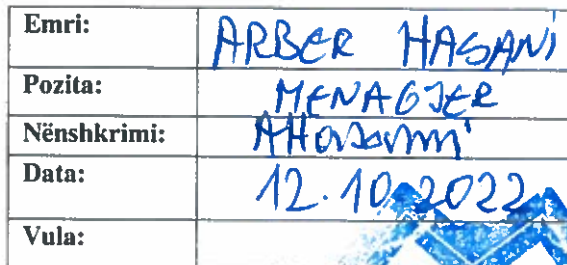 Emri: ARBER HASANI
Pozita: MENAGJER
Nënshkrimi: AHasani
Data: 12.10.2022
Vula: